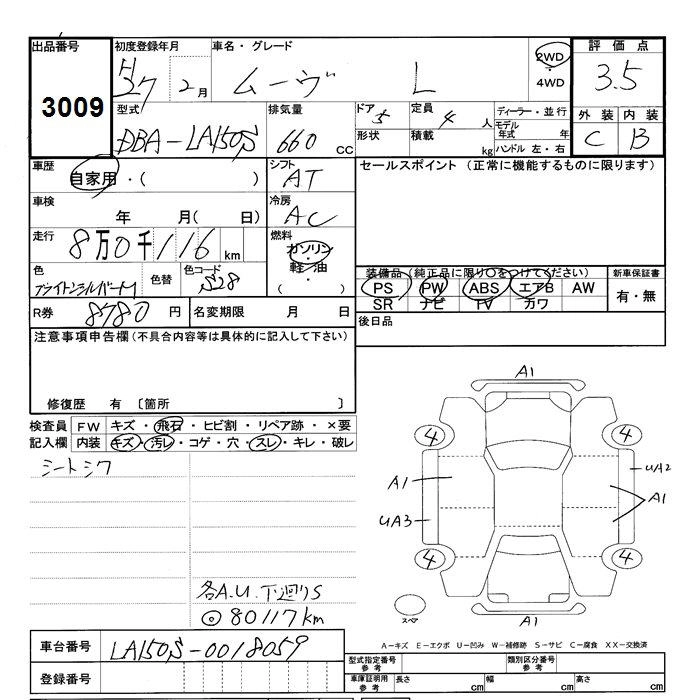 出品番号 初度登録年月 車名・グレード 評価点
3009 H27 2月 ムーヴ L 2WD・4WD 3.5
型式 排気量 ドア 5 定員 4 人 ディーラー・並行 外装 内装
DBA-LA150S 660 cc 形状 積載 kg モデル年式 年 C B
ハンドル 左・右
車歴 自家用・( ) シフト AT セールスポイント (正常に機能するものに限ります)
車検 年 月( 日) 冷房 AC
走行 8万0千116 km 燃料 ガソリン・軽油・( )
色 ブライトシルバーM 色替 色コード S28 装備品(純正品に限り○をつけてください) 新車保証書
PS PW ABS エアB AW 有・無
SR ナビ TV カワ
R券 8780 円 名変期限 月 日 後日品
注意事項申告欄(不具合内容等は具体的に記入して下さい)
修復歴 有 〔箇所 〕
検査員 FW キズ・飛石・ヒビ割・リペア跡・×要
記入欄 内装 キズ・汚レ・コゲ・穴・スレ・キレ・破レ
シートシワ
各A.U. 下廻りS
◎80117km
A1
4 4
A1 UA2
A1
UA3
4 4
スペア A1
A-キズ E-エクボ U-凹み W-補修跡 S-サビ C-腐食 XX-交換済
車台番号 LA150S-0018059
型式指定番号 参考 類別区分番号 参考
登録番号 車庫証明用 参考 長さ cm 幅 cm 高さ cm